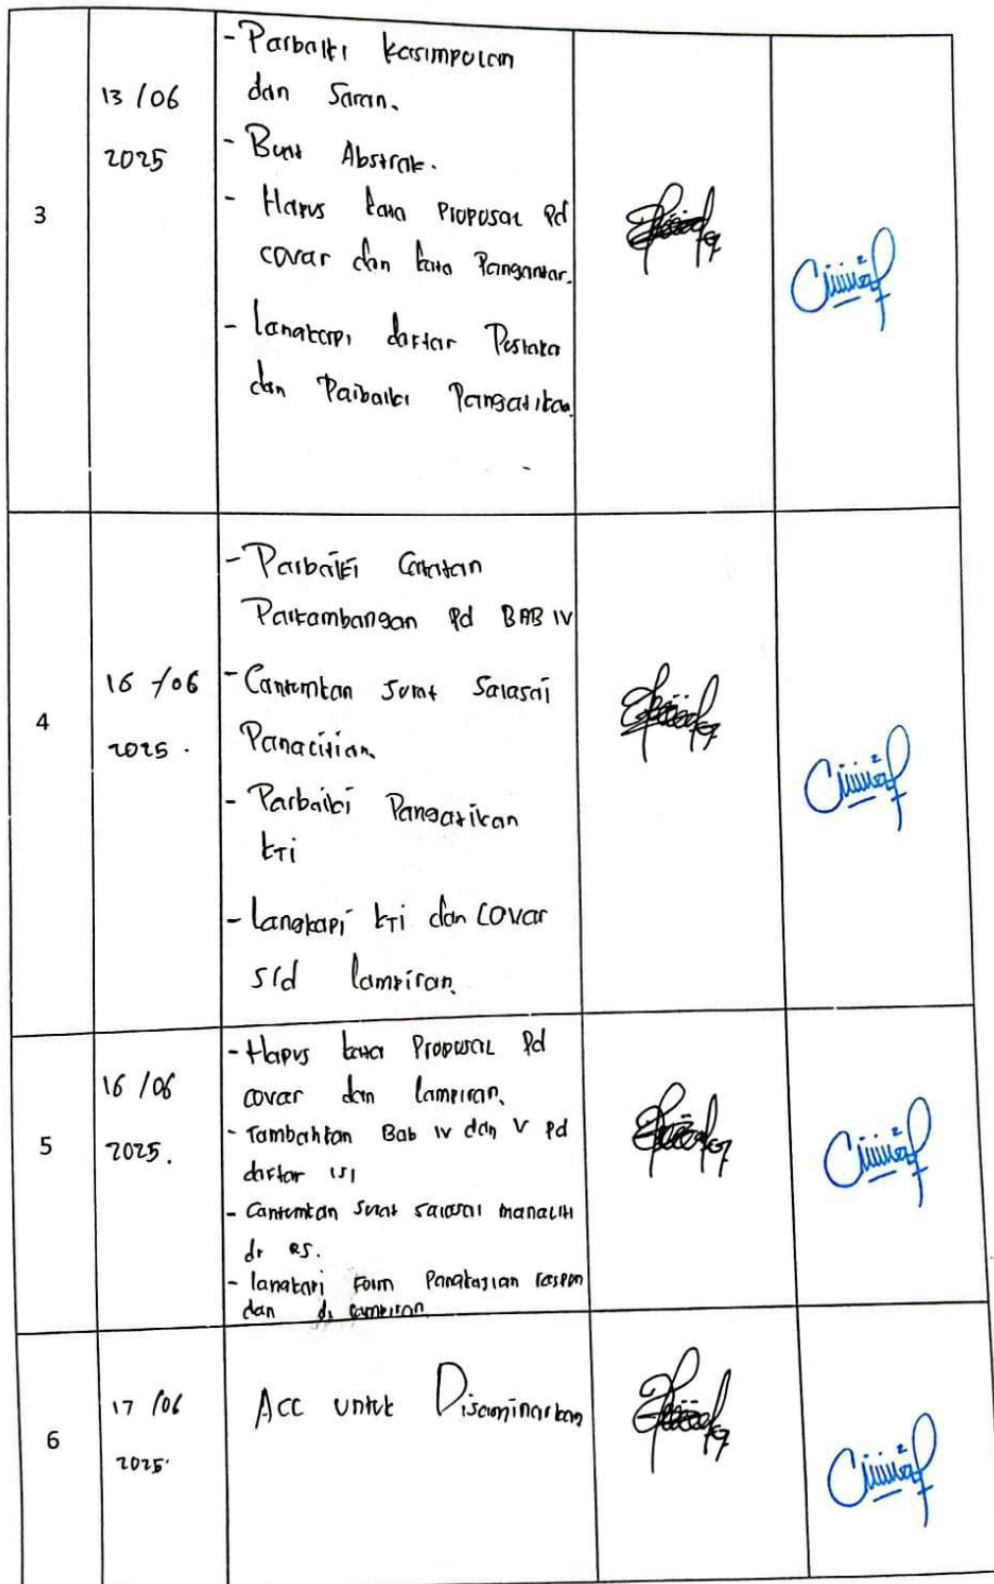 3
13/06
2025
- Perbaiki kesimpulan
dan Saran.
- Buat Abstrak.
- Hapus kata Proposal Pd
cover dan kata Pengantar.
- Lengkapi daftar Pustaka
dan Perbaiki Pengetikan.
4
16/06
2025.
- Perbaiki Catatan
Perkembangan Pd BAB IV
- Cantumkan Surat Selesai
Penelitian.
- Perbaiki Pengetikan
KTI
- Lengkapi KTI dan Cover
s/d lampiran.
5
16/06
2025.
- Hapus kata Proposal Pd
cover dan lampiran.
- Tambahkan Bab IV dan V Pd
daftar isi
- Cantumkan Surat selesai meneliti
dr RS.
- lengkapi Form Pengkajian respon
dan di lampiran
6
17/06
2025.
Acc untuk Diseminarkan